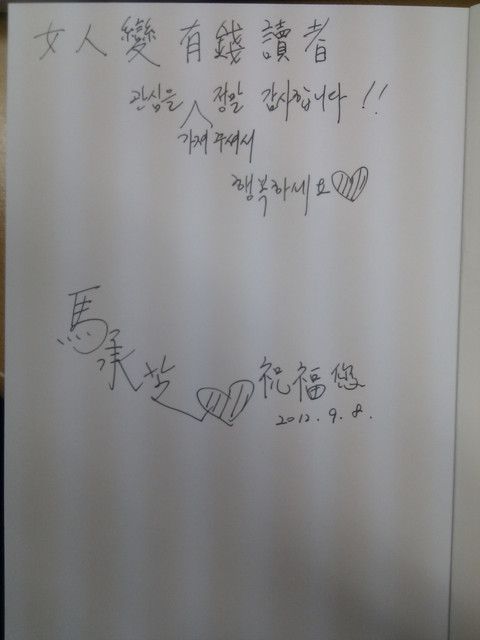 女人變有錢讀者
관심을 정말 감사합니다!!
가져주셔서
행복하세요
馬承芝
祝福您
2012.9.8.